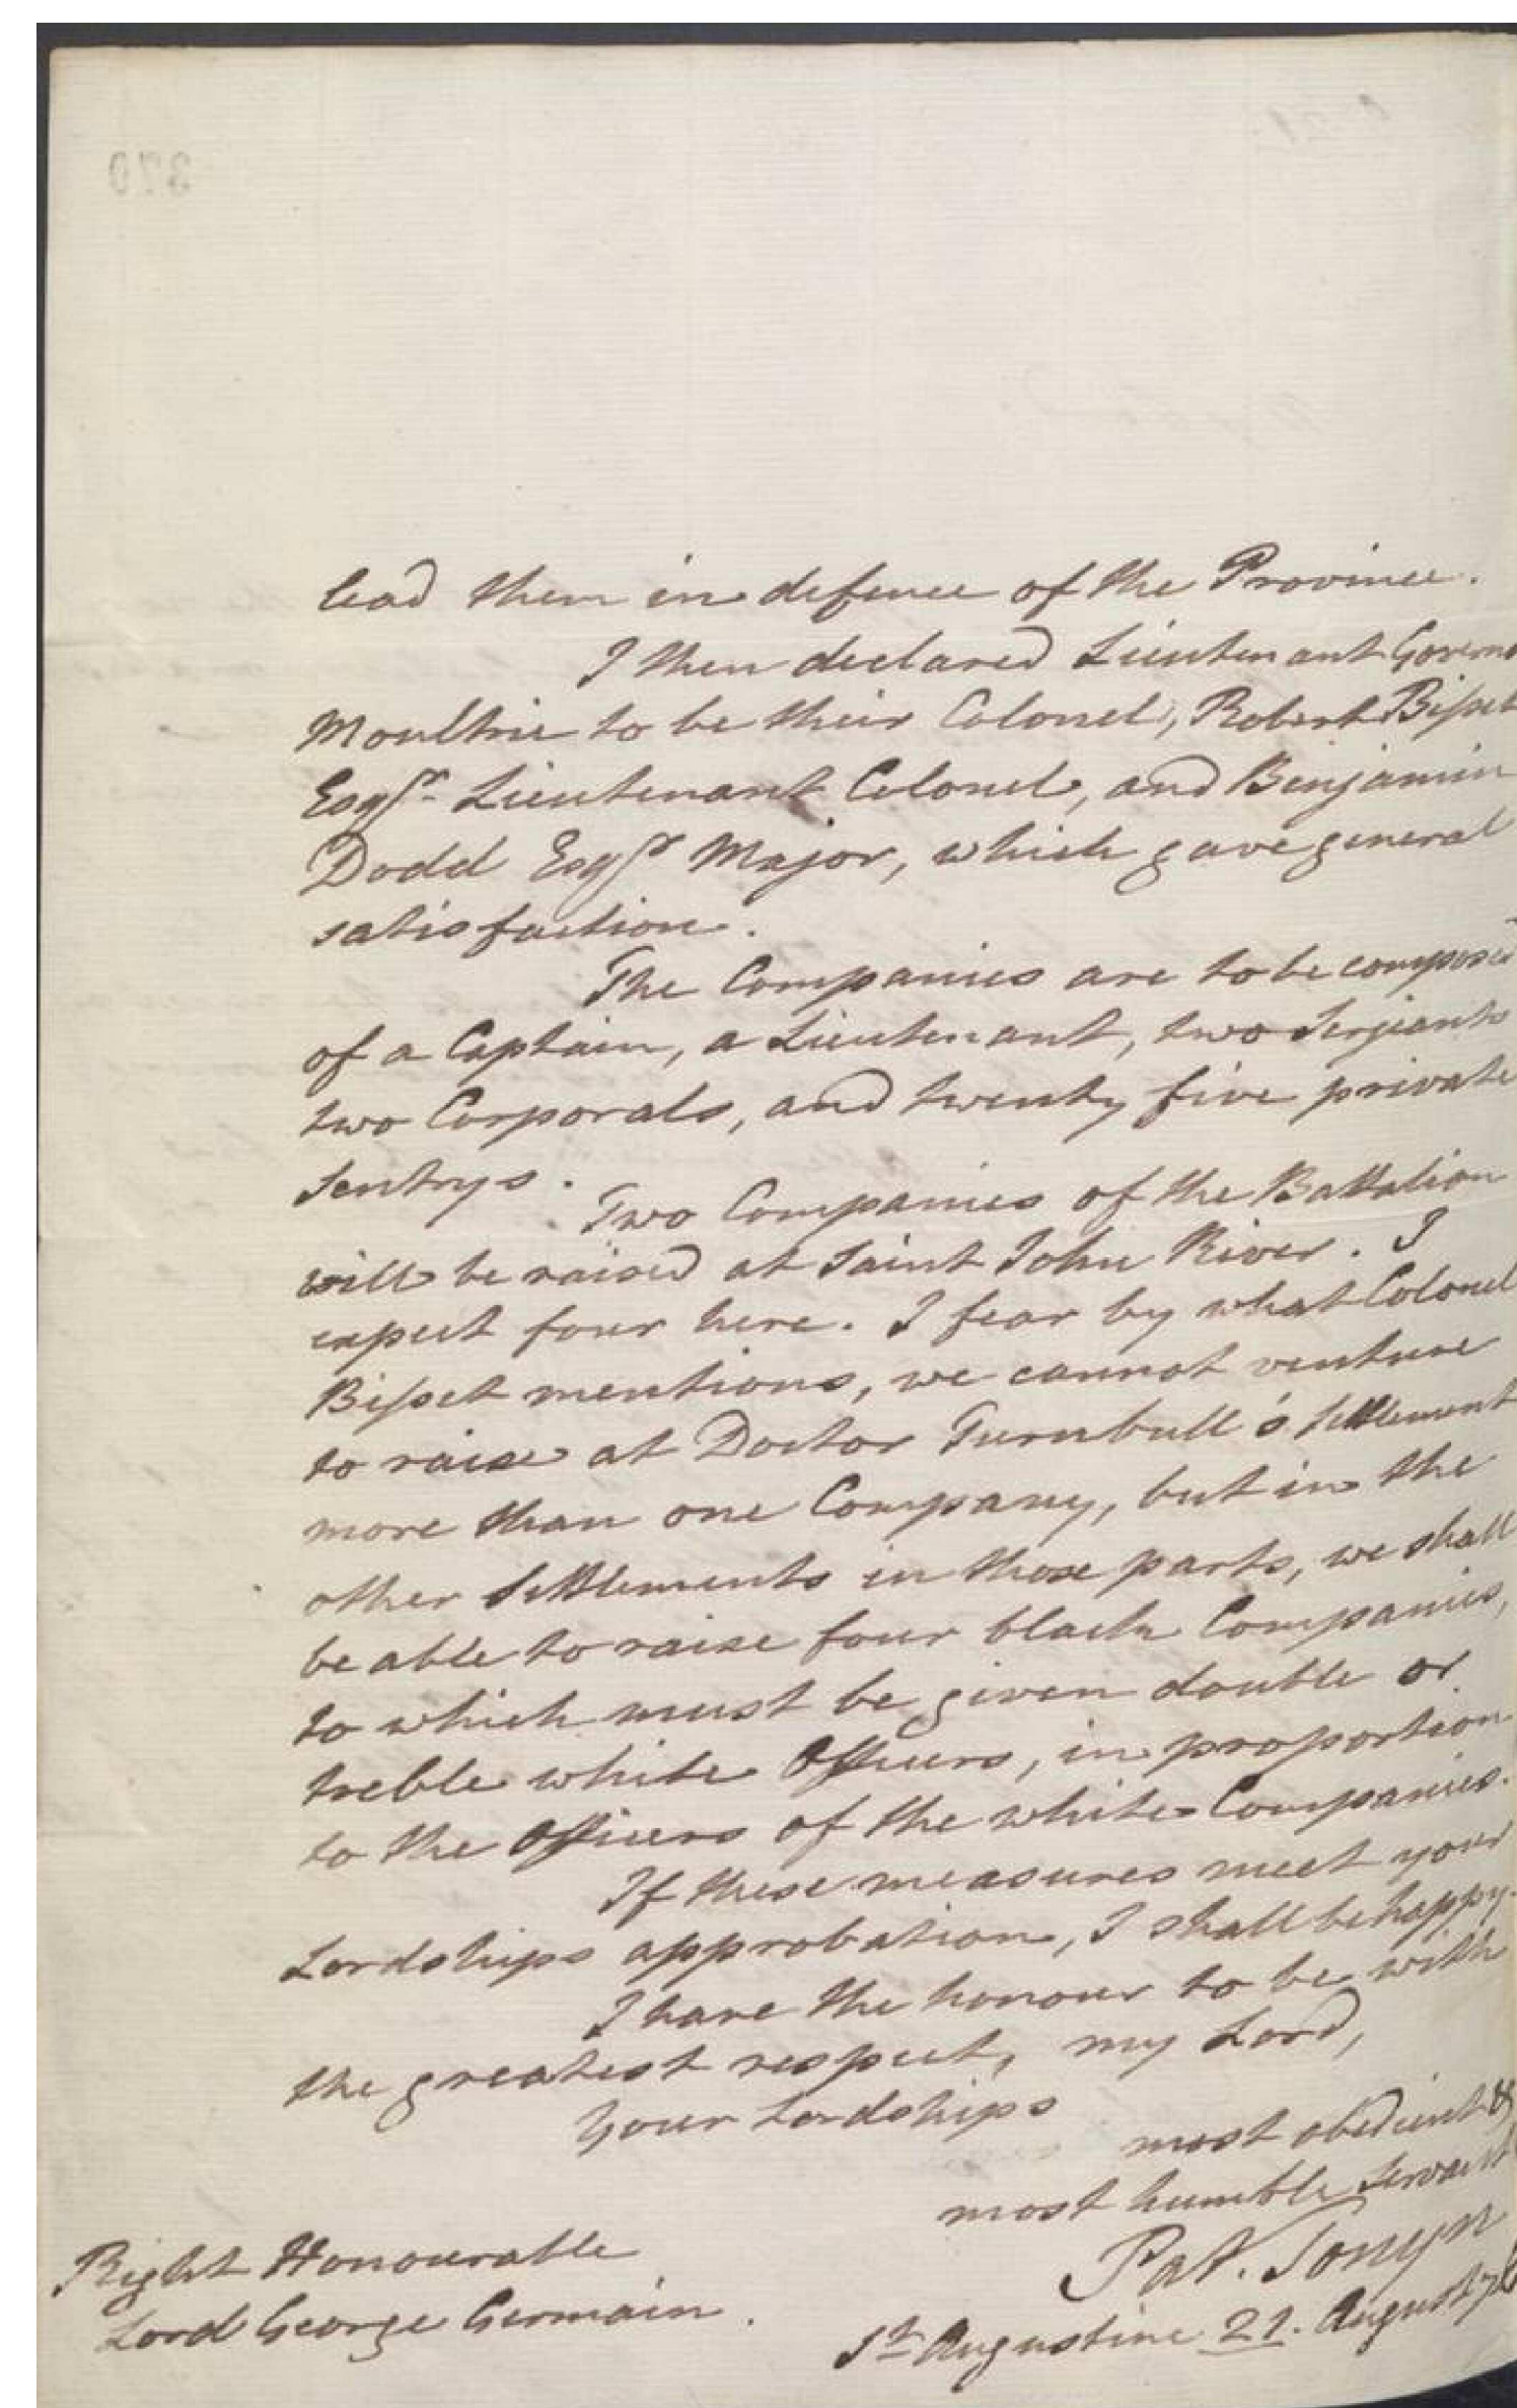 lead them in defence of the Province.
I then declared Lieutenant Governo
Moultrie to be their Colonel, Robert Bisset
Esqr. Lieutenant Colonel, and Benjamin
Dodd Esqr Major, which gave general
satisfaction.
The Companies are to be composed
of a Captain, a Lieutenant, two Serjeants
two Corporals, and twenty five private
Sentrys.
Two Companies of the Battalion
will be raised at Saint John River. I
expect four here. I fear by what Colonel
Bisset mentions, we cannot venture
to raise at Doctor Turnbull's Settlement
more than one Company, but in the
other Settlements in those parts, we shall
be able to raise four black Companies,
to which must be given double or
treble white Officers, in proportion
to the Officers of the white Companies.
If these measures meet your
Lordships approbation, I shall be happy.
I have the honour to be with
the greatest respect, my Lord,
Your Lordships
most obedient &
most humble Servant
Pat. Tonyn
Right Honourable
Lord George Germain.
St Augustine 21. August 76
370